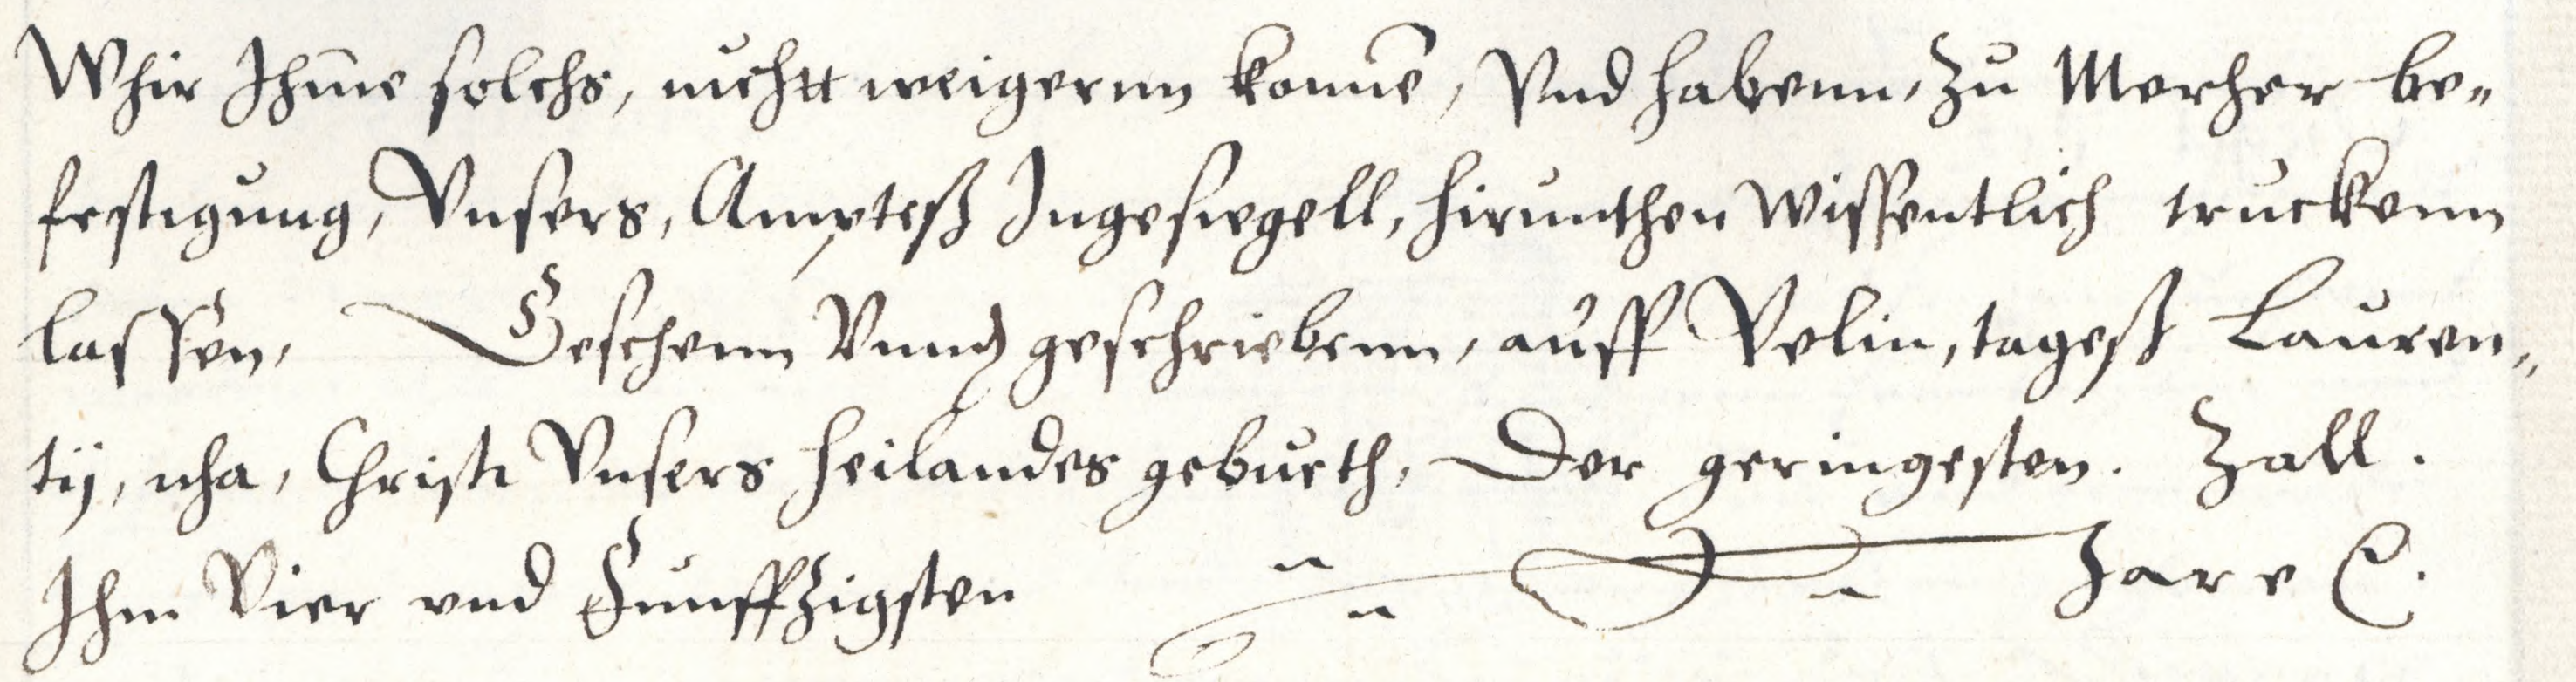 Whir Ihme solchs, nichtt weigernn konne, Vnd habenn, zu Mercher be„
festigung, Vnsers, Ampteß Ingesiegell, hirunthen wissentlich truckenn
lassen, Geschenn Vnnd geschriebenn, auff Velin, tageß Lauren„
tij, nha, Christi Vnsers heilandes geburth, Der geringesten. Zall.
Ihm Vier vnd Funffzigsten Jare